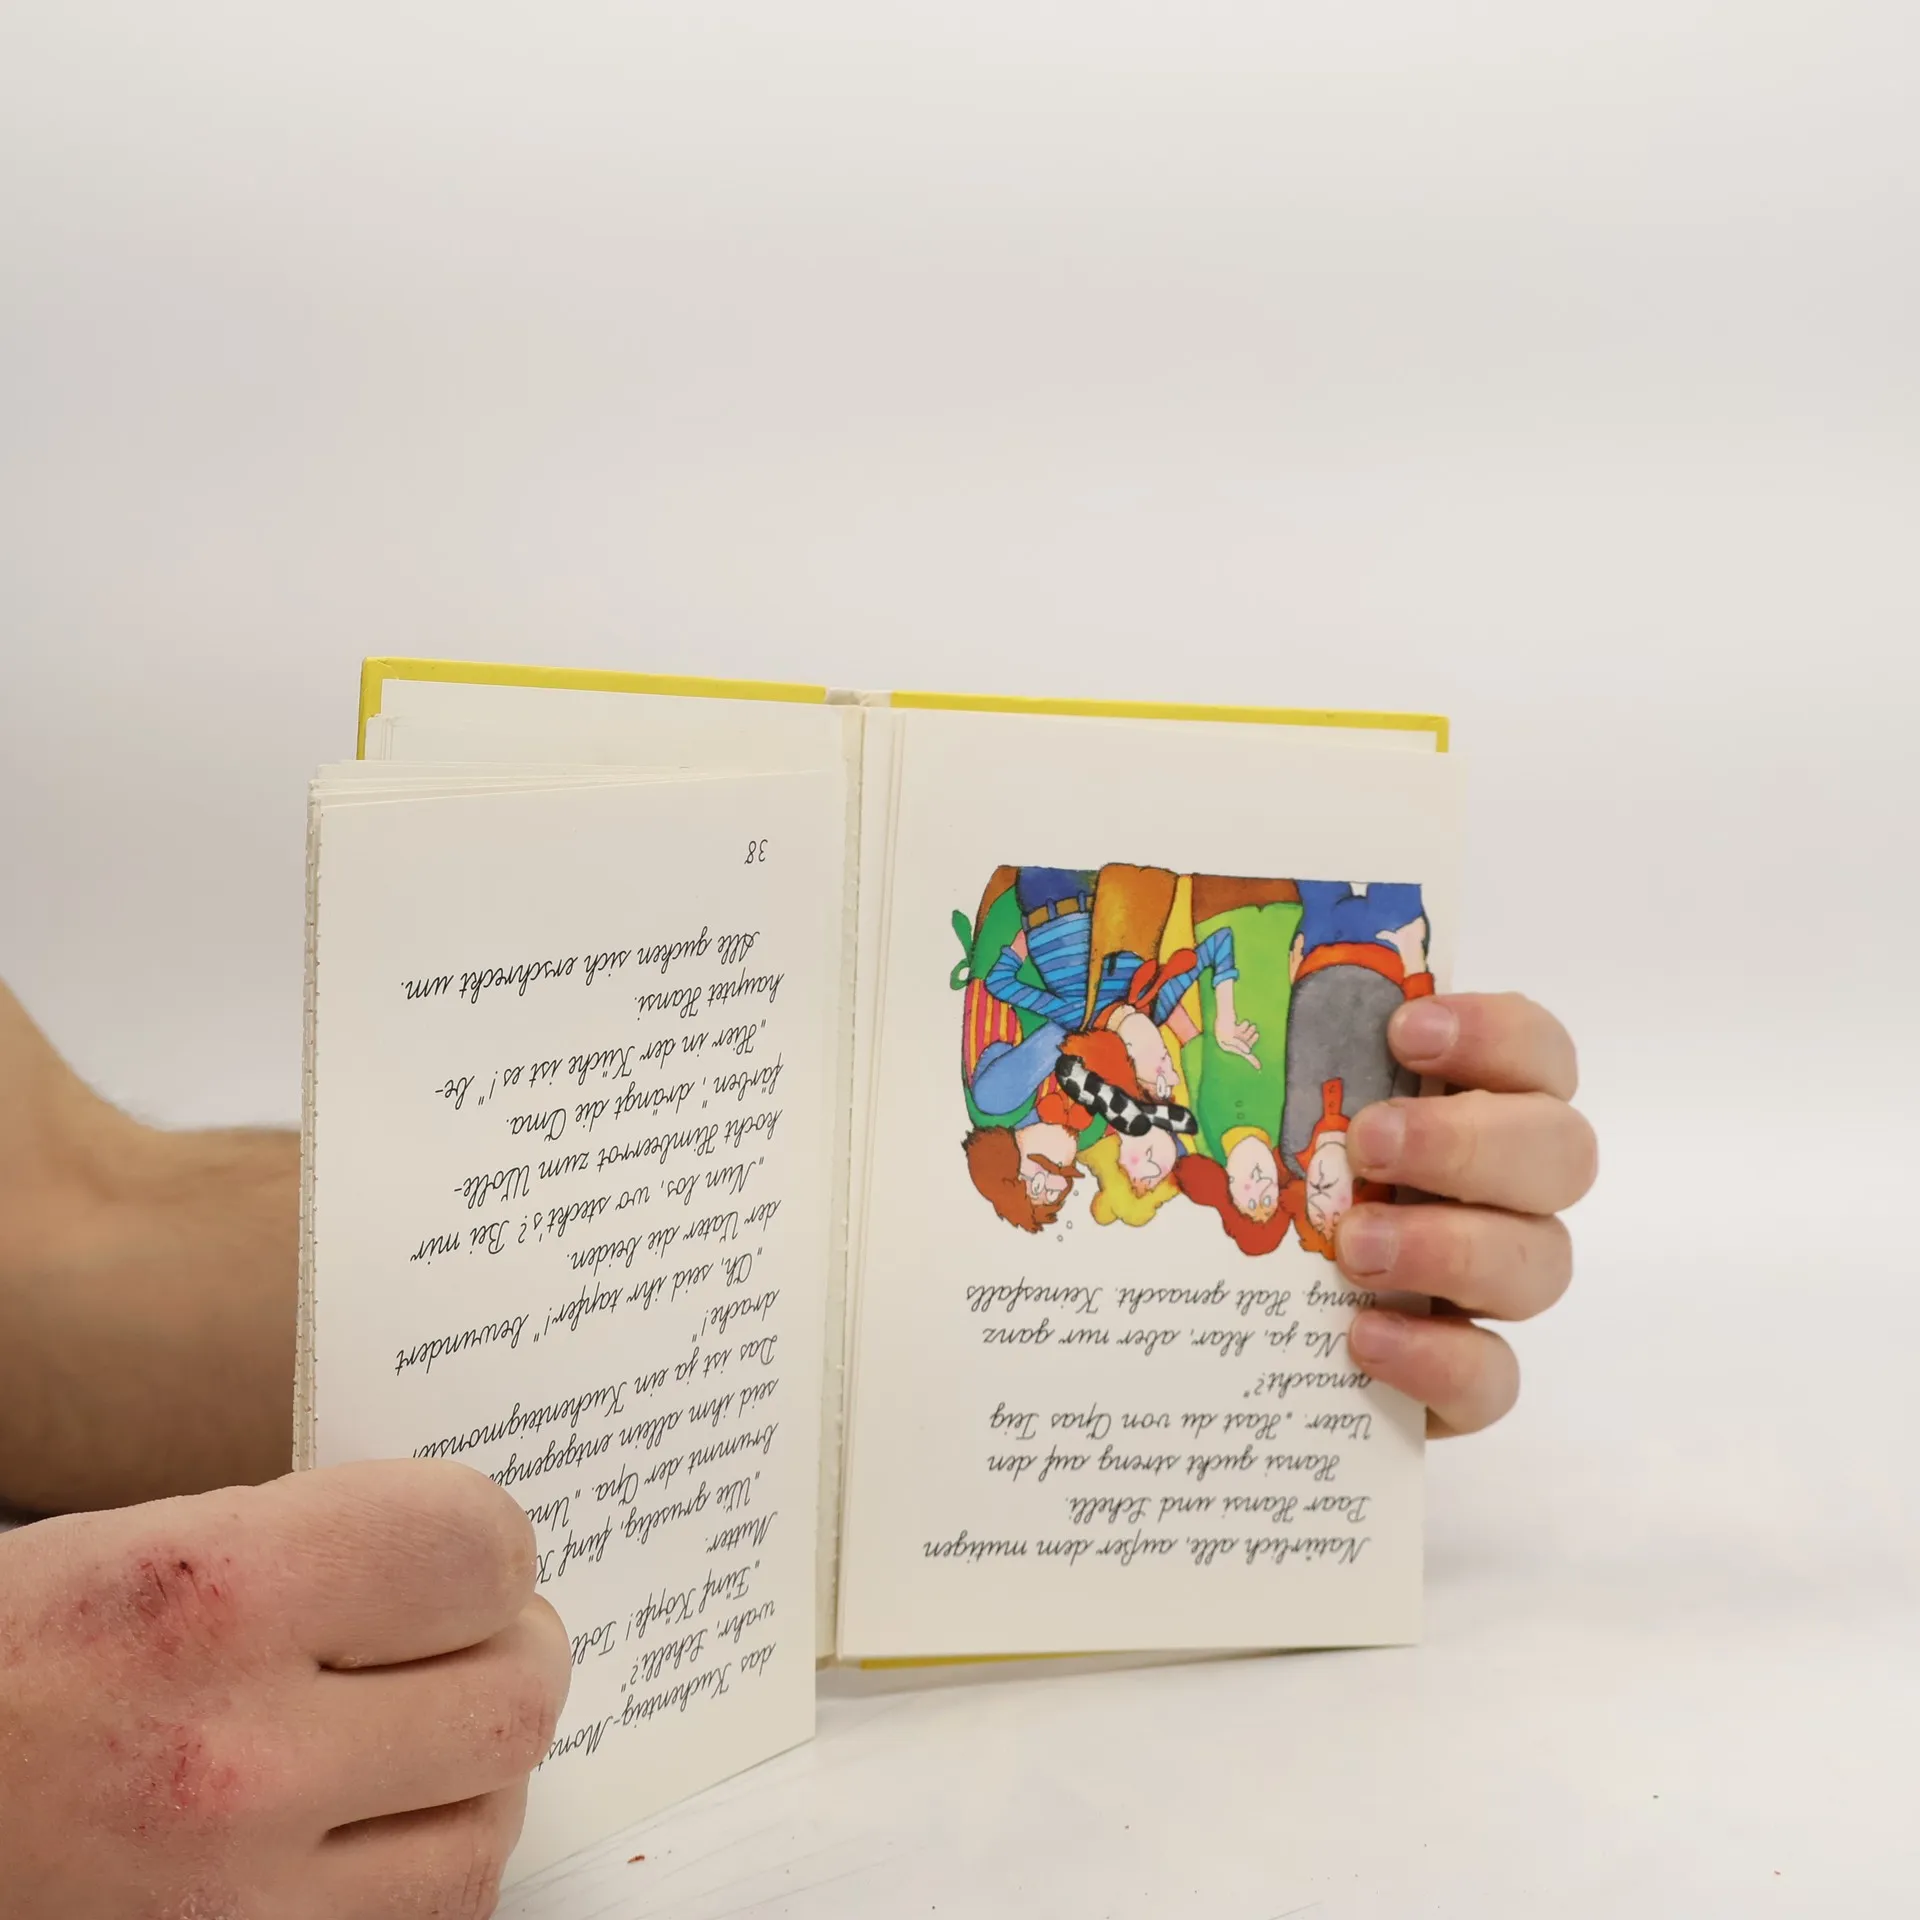 Natürlich alle, außer dem mutigen
Paar Hansi und Schelli.
Hansi guckt streng auf den
Vater. „Hast du von Opas Teig
genascht?"
Na ja, klar, aber nur ganz
wenig. Halt genascht. Keinesfalls
das
wahr, Schelli?"
„Fünf Köpfe! Toll
Mutter.
„Wie gruselig, fünf
brummt der Opa. „Und
seid ihm allein
Das ist ja ein
drache!"
„Oh, seid ihr tapfer!" bewundert
der Vater die beiden.
„Nun los, wo steckt's? Bei mir
kocht Himbeerrot zum Wolle-
färben", drängt die Oma.
„Hier in der Küche ist es!" be-
hauptet Hansi.
Alle gucken sich erschreckt um.
38